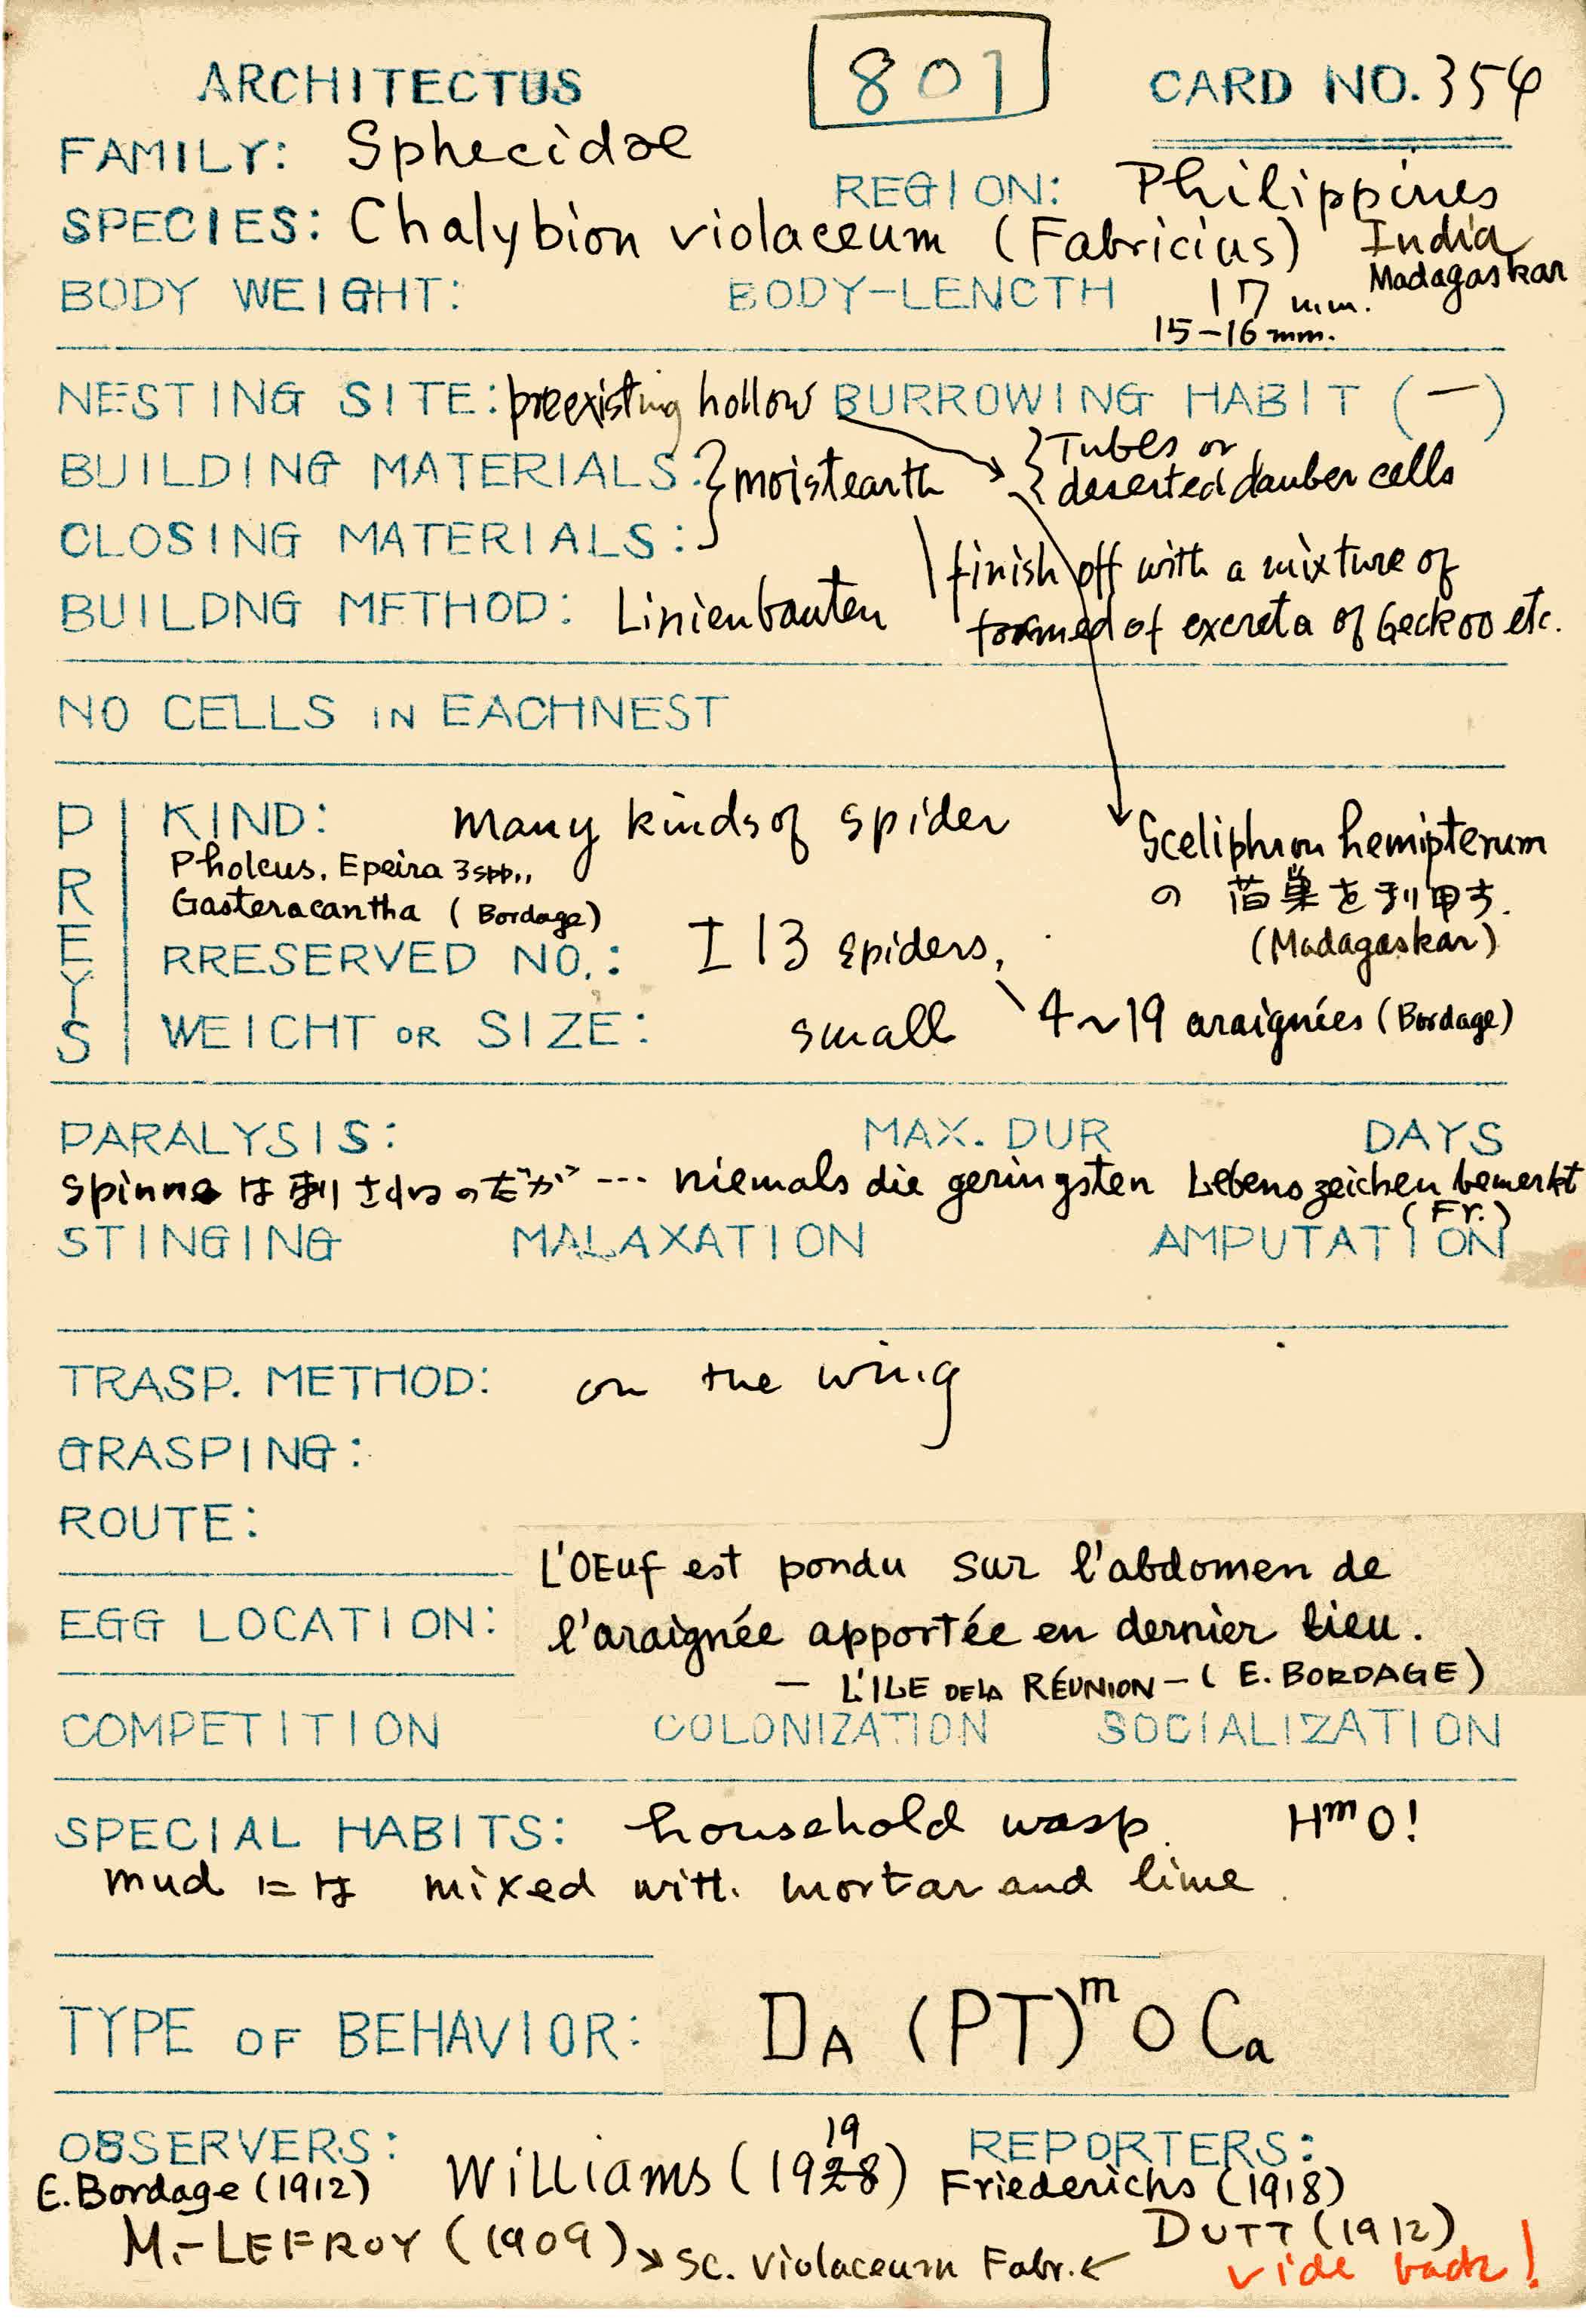 ARCHITECTUS 801 CARD NO. 354
FAMILY: Sphecidae
REGION: Philippines
SPECIES: Chalybion violaceum (Fabricius) India
Madagaskar
BODY WEIGHT: BODY-LENCTH 17 mm.
15-16 mm.
NESTING SITE: preexisting hollow BURROWING HABIT (—)
Tubes or
BUILDING MATERIALS: moist earth deserted dauber cells
CLOSING MATERIALS:
finish off with a mixture of
BUILDNG METHOD: Linienbauten formed of excreta of Geckoo etc.
NO CELLS IN EACHNEST
PREYS
KIND: many kinds of spider
Pholcus, Epeira 3spp.,
Gasteracantha (Bordage)
Sceliphron hemipterum
の 旧巣を利用す.
(Madagaskar)
RRESERVED NO.: I 13 spiders,
4~19 araignées (Bordage)
WEICHT OR SIZE: small
PARALYSIS: MAX. DUR DAYS
Spinne は刺されるのだが --- niemals die geringsten Lebenszeichen bemerkt
(Fr.)
STINGING MALAXATION AMPUTATION
TRASP. METHOD: on the wing
GRASPING:
ROUTE:
L'OEuf est pondu sur l'abdomen de
EGG LOCATION: l'araignée apportée en dernier lieu.
— L'ILE DE LA RÉUNION — (E. BORDAGE)
COMPETITION COLONIZATION SOCIALIZATION
SPECIAL HABITS: household wasp. HmO!
mud には mixed with mortar and lime.
TYPE OF BEHAVIOR: DA (PT)m O Ca
OBSERVERS: Williams (1928) 19 REPORTERS:
E. Bordage (1912) Friederichs (1918)
M.-LEFROY (1909) → Sc. violaceum Fabr. ← DUTT (1912)
vide back!